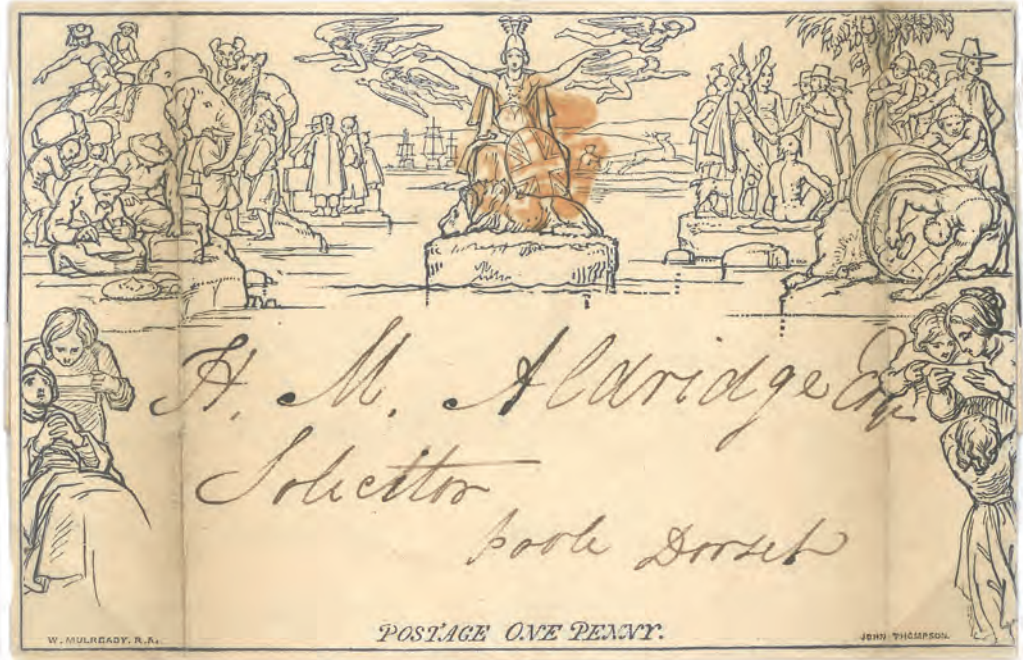 H. M. Aldridge Esqr
Solicitor
Poole Dorset
W. MULREADY. R.A.
POSTAGE ONE PENNY.
JOHN THOMPSON.